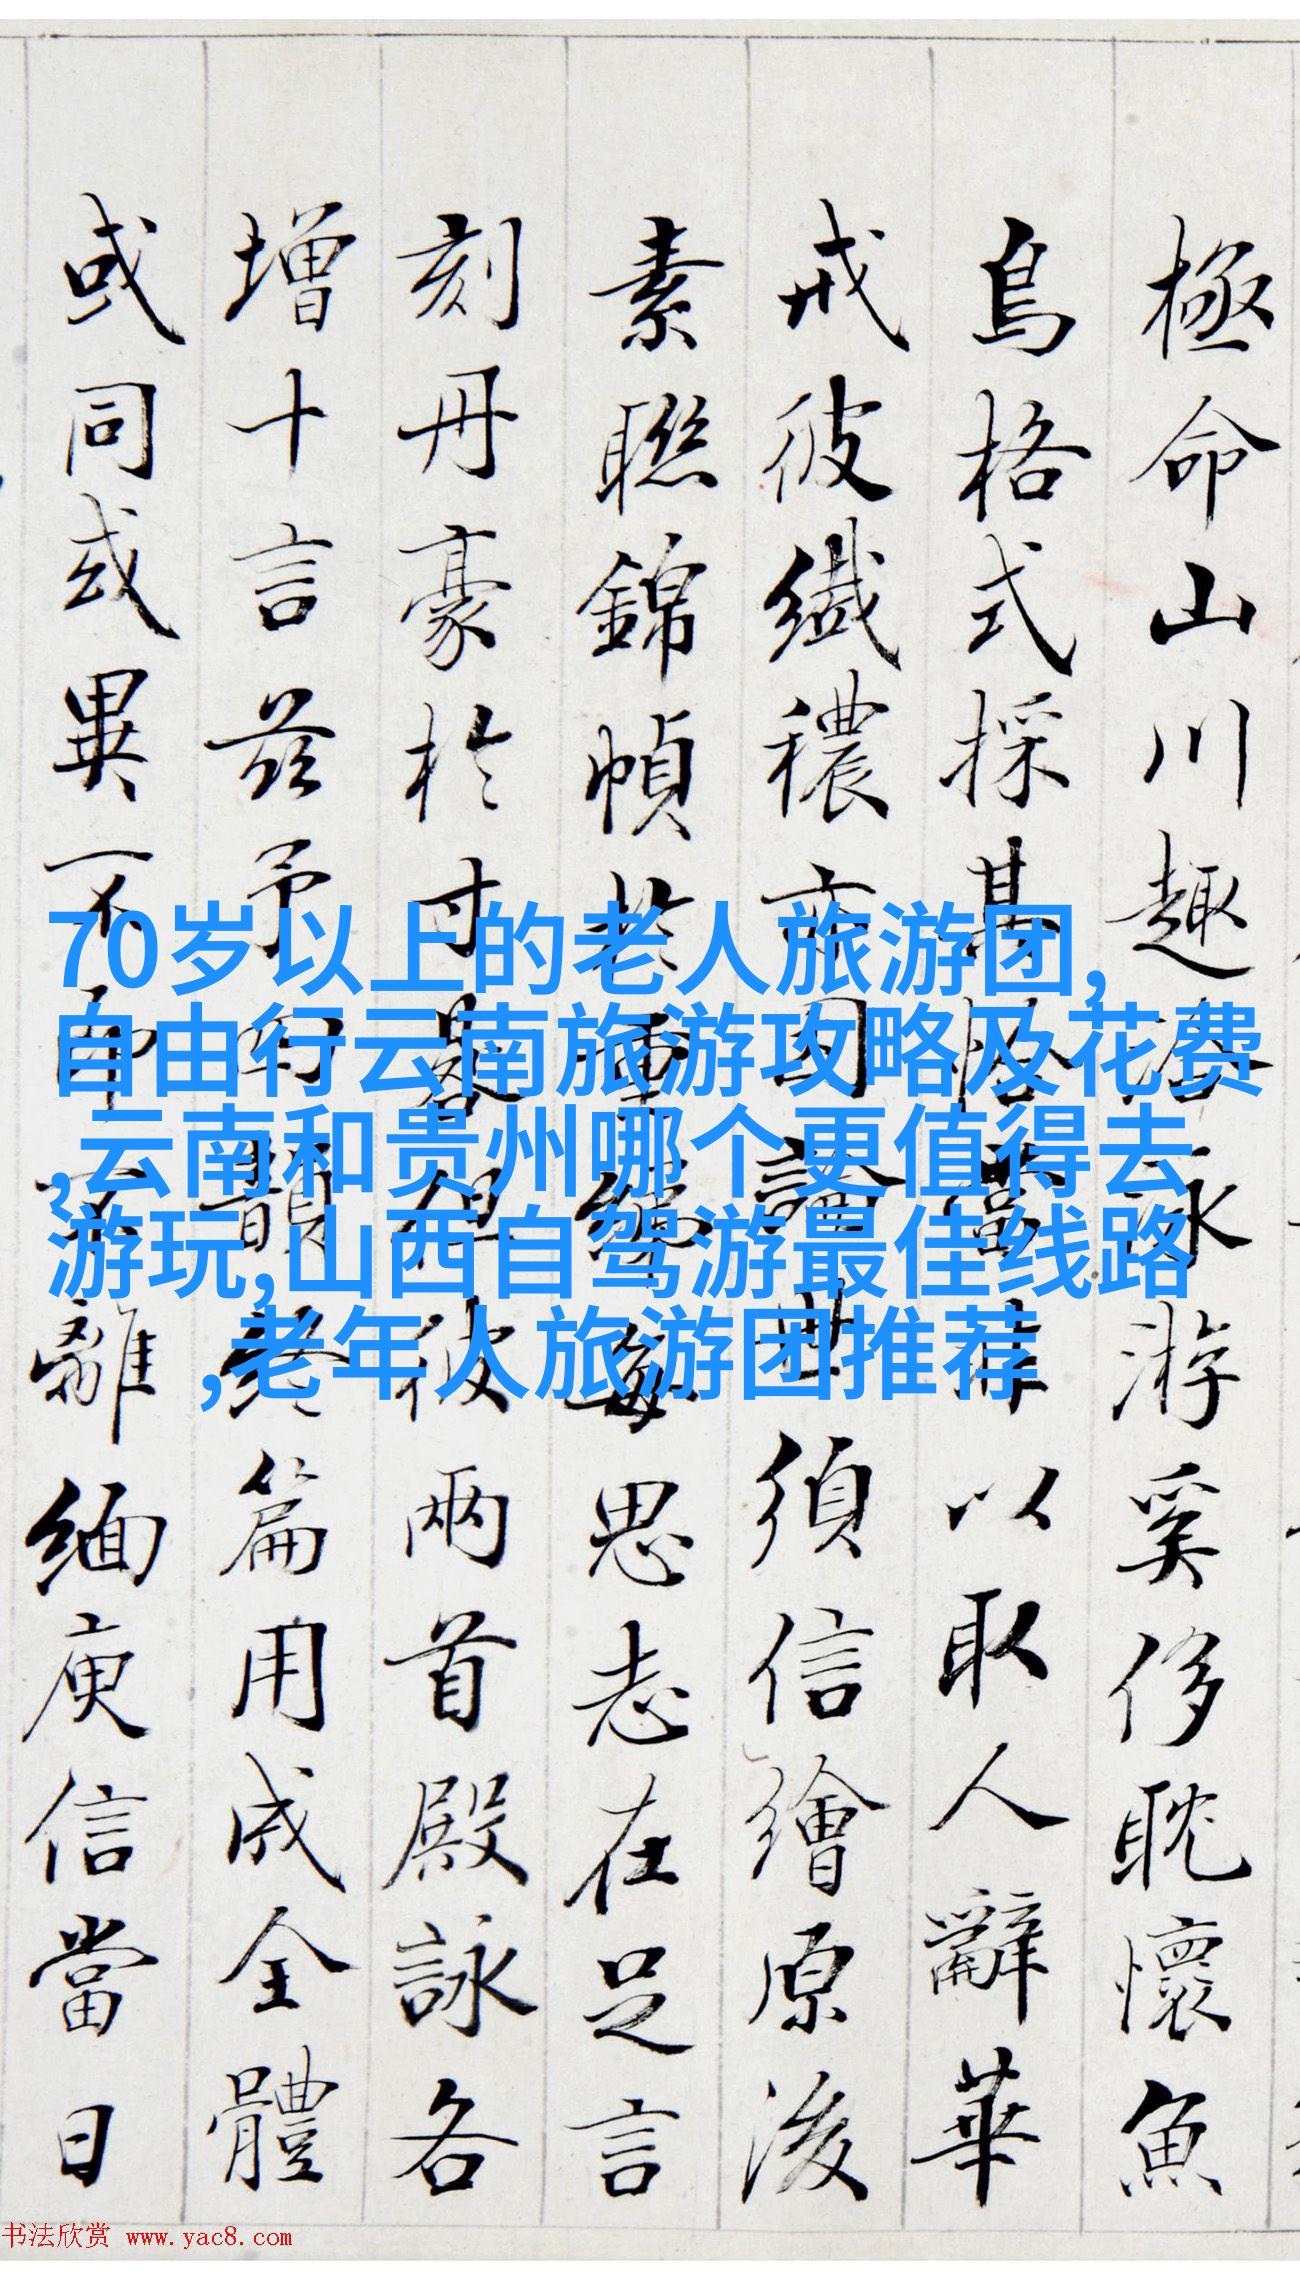 極命山川趣洽永游奚侈耽懷魚
鳥格式採其
以取人辭華
戒彼纖穠亦因論世須信繪原後
素聯錦幀於重繡每思志在足言
刻丹豪於寸晷但彼兩首殿詠各
增十言茲予
終篇用成全體
或同或異不即不離緬庾信當日
70岁以上的老人旅游团,
自由行云南旅游攻略及花费
,云南和贵州哪个更值得去
游玩,山西自驾游最佳线路
,老年人旅游团推荐
书法欣赏 www.yac8.com